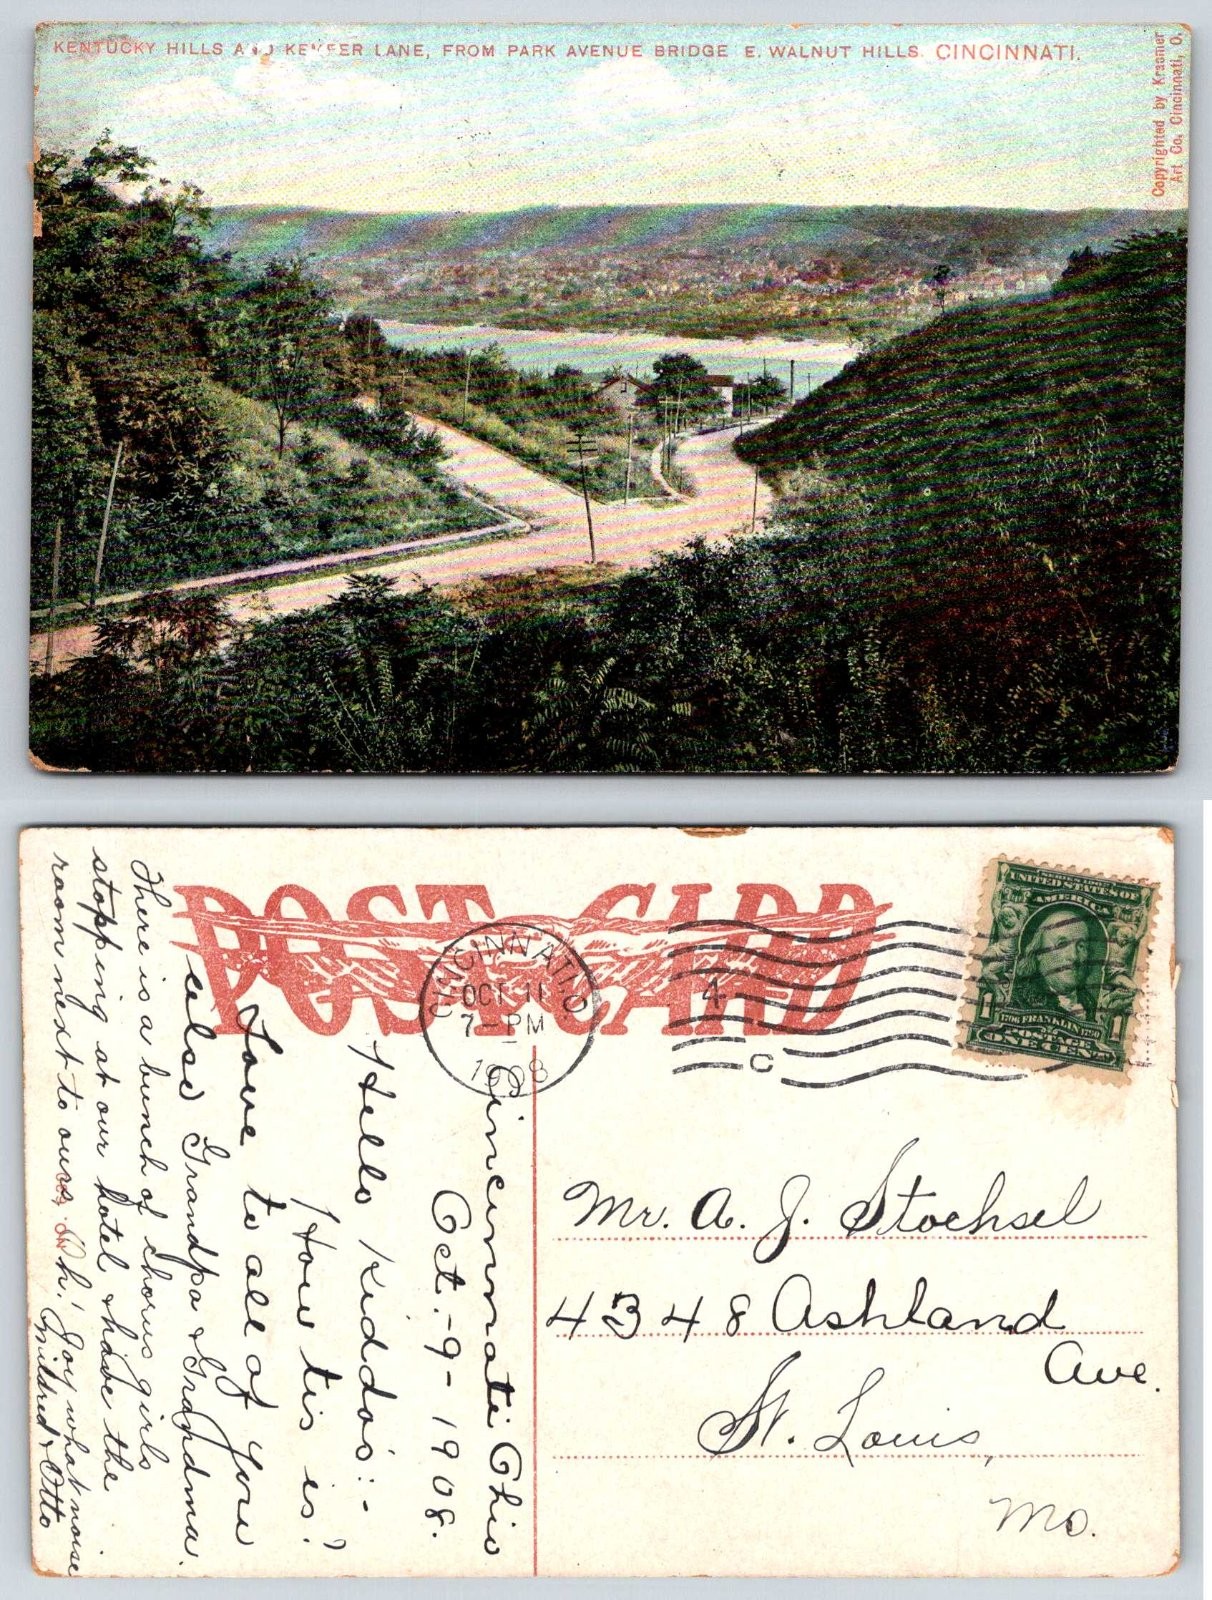 KENTUCKY HILLS AND KEMPER LANE, FROM PARK AVENUE BRIDGE E. WALNUT HILLS. CINCINNATI.
Copyrighted by Kraemer
Art Co. Cincinnati, O.
POST CARD
CINCINNATI, O
OCT 11
7-PM
1908
4
C
SERIES 1902
UNITED STATES OF
AMERICA
1 1
1706 FRANKLIN 1790
POSTAGE
ONE CENT
Cincinnati Ohio
Oct.-9-1908.
Hello Kiddo's:-
How tis is?
Love to all of you
also Grandpa & Grandma.
There is a bunch of chorus girls
stopping at our hotel & have the
room next to ours. Oh! Boy what noise
Mildred & Otto
Mr. A. J. Stochsel
4348 Ashland
Ave.
St. Louis,
Mo.